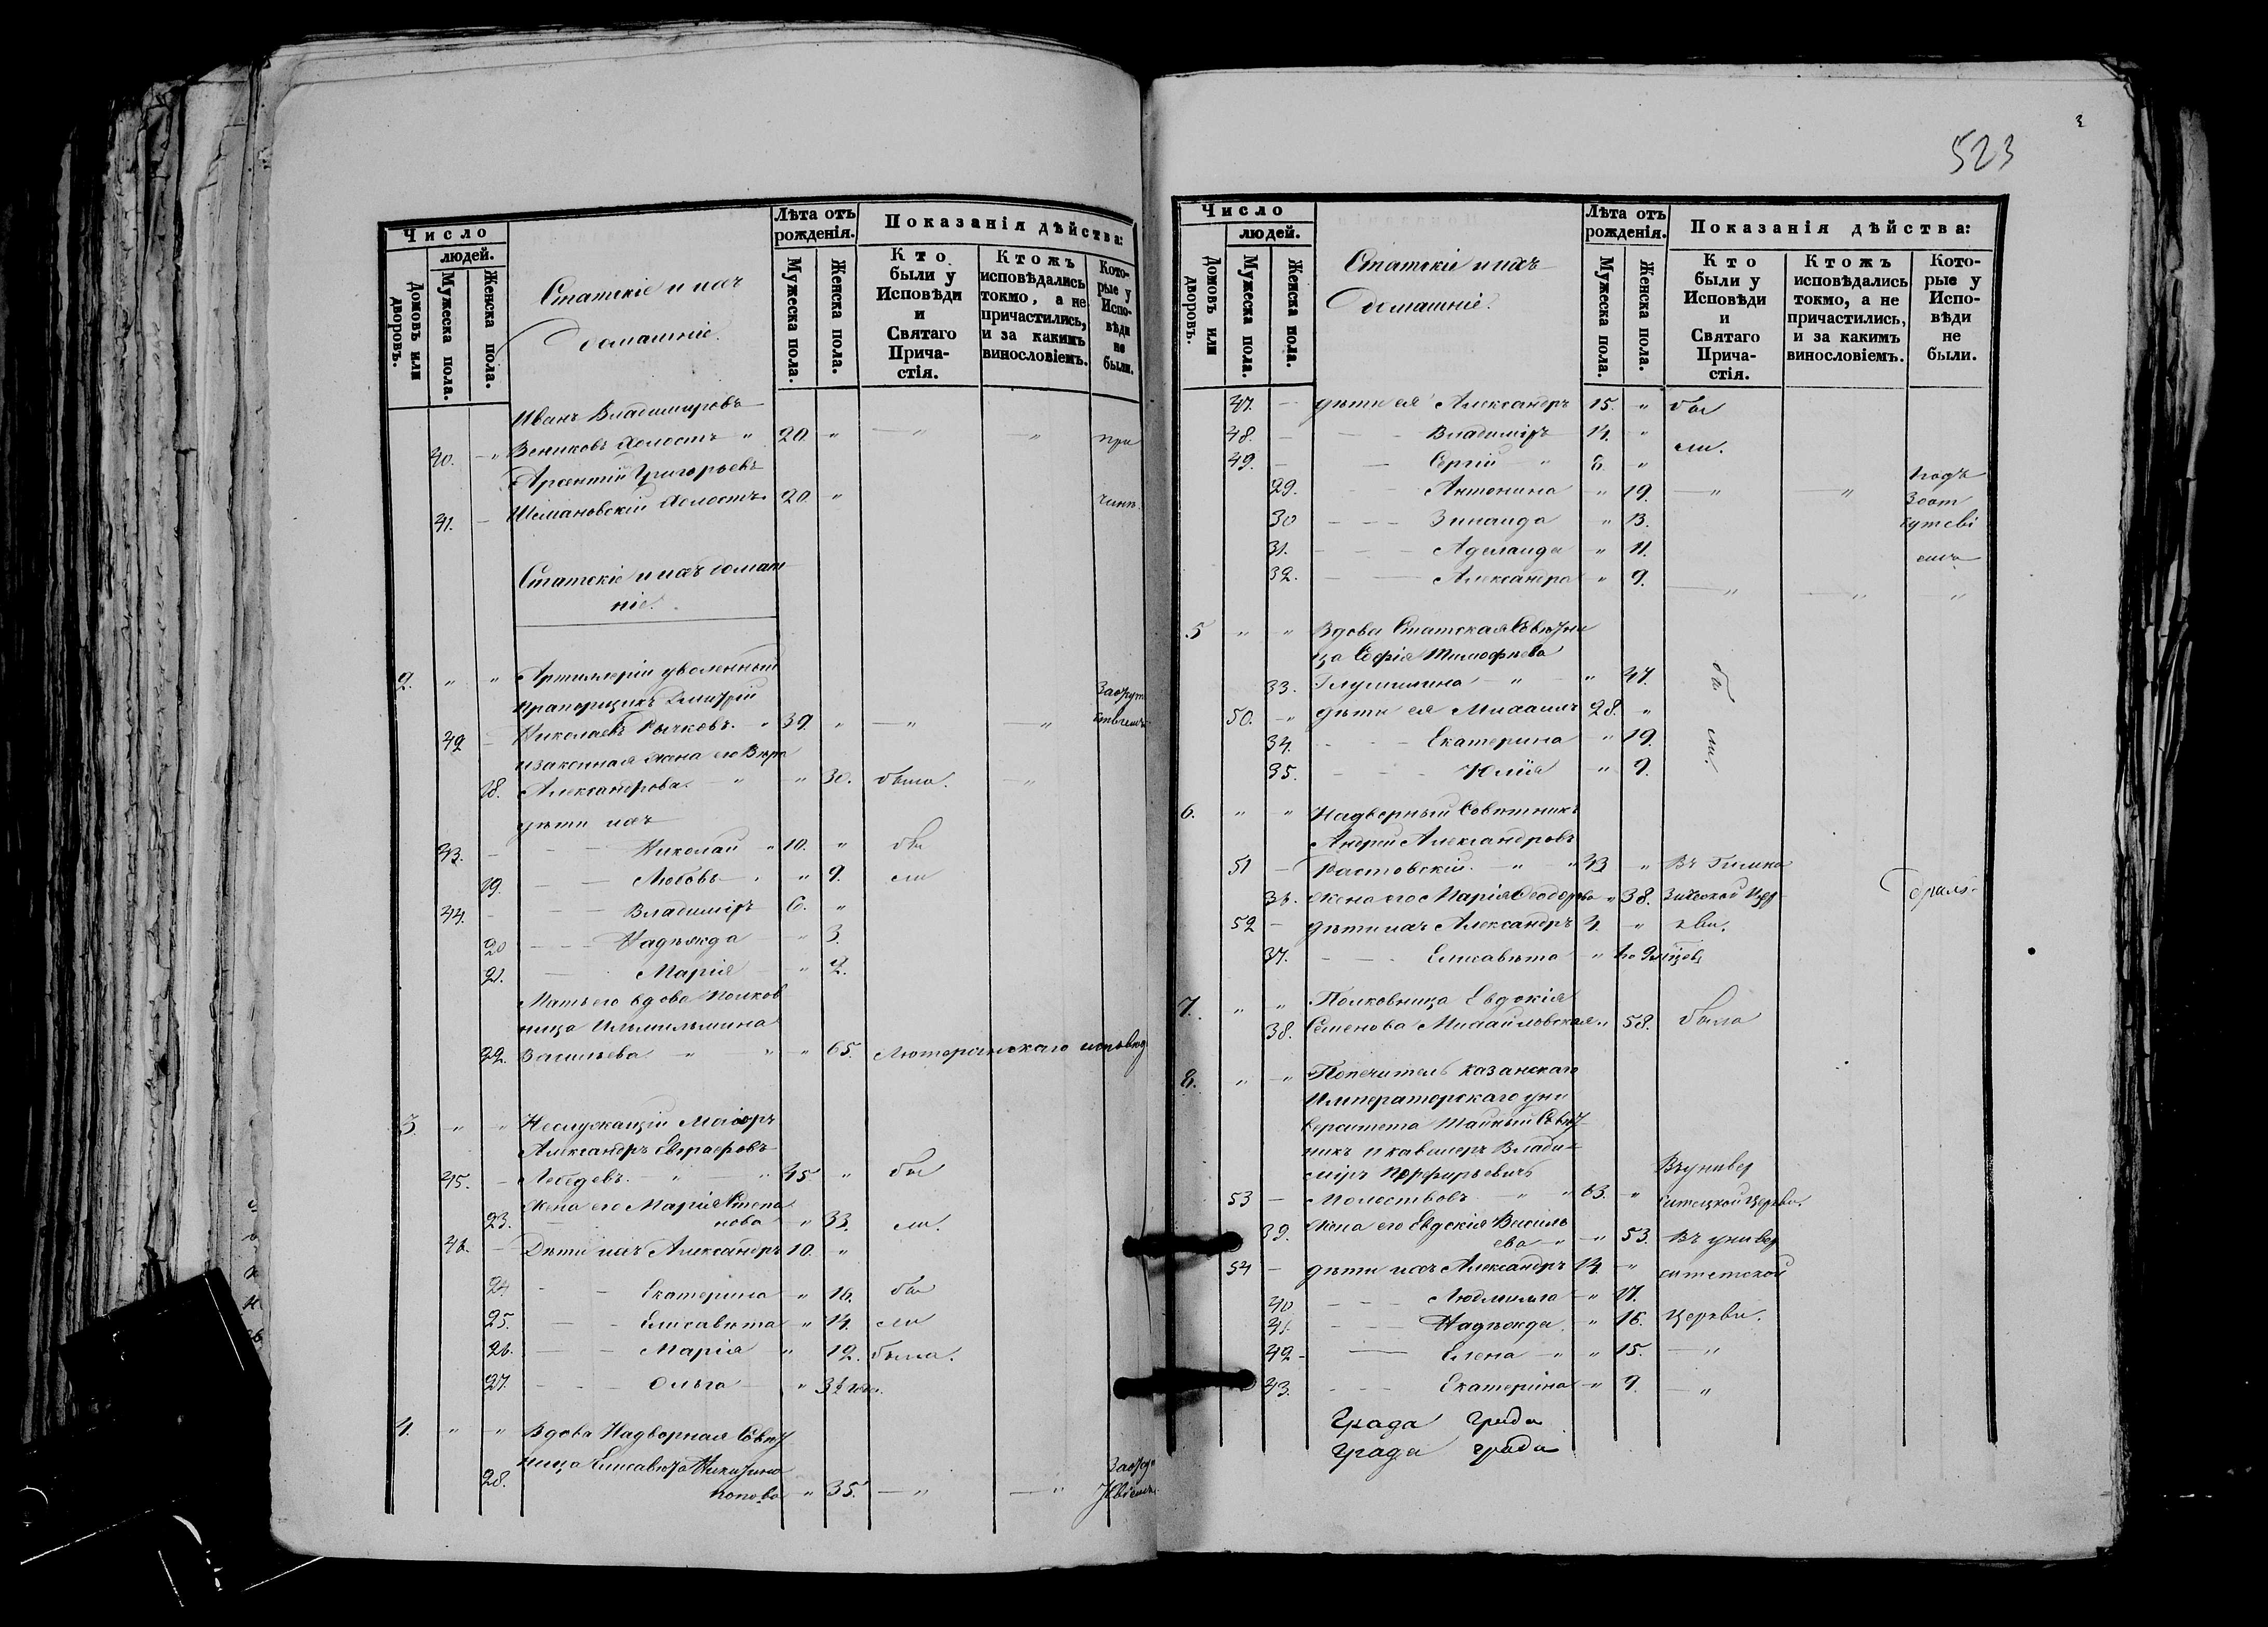 523
Число
людей.
Домовъ или дворовъ.
Мужеска пола.
Женска пола.
Статскіе и ихъ
домашніе.
Лѣта отъ рожденія.
Мужеска пола.
Женска пола.
Показанія дѣйства:
Кто были у Исповѣди и Святаго Причастія.
Ктожъ исповѣдались токмо, а не причастились, и за какимъ винословіемъ.
Которые у Исповѣди не были.
Иванъ Владимировъ
40. Вениковъ Холостъ " 20 " при
Арсентій Григорьевъ
41. Шемановскій Холостъ 20 "
Статскіе и ихъ домаш
ніе.
2. " " Артиллеріи уволенный
Прапорщикъ Дмитрій
42 Николаевъ Рычковъ. " 39. "
и законная жена его Вѣра
18. Александрова " " 30. была.
дѣти ихъ
43. Николай " 10. " бы
19. Любовь " 9. ли
44. Владиміръ 6. "
20 Надежда " 3.
21. Марія " 2.
Мать его вдова Полков
ница Вильгельмина
22. Васильева " " 65. Лютеранскаго исповѣд
3. " " Неслужащій Маіоръ
Александръ Евграфовъ
45. Лебедевъ. " 45 " бы
Жена его Марія Степа
23. нова " 33. ли.
46. Дѣти ихъ Александръ 10. "
24 Екатерина " 16. бы
25. Елисавѣта " 14. ли
26. Марія " 12. была.
27. Ольга " 3½ года.
4. " " Вдова Надворная Совѣт
ница Елисавета Никитина
28. Попова " 35. " "
Число
людей.
Домовъ или дворовъ.
Мужеска пола.
Женска пола.
Статскіе и ихъ
домашніе.
Лѣта отъ рожденія.
Мужеска пола.
Женска пола.
Показанія дѣйства:
Кто были у Исповѣди и Святаго Причастія.
Ктожъ исповѣдались токмо, а не причастились, и за какимъ винословіемъ.
Которые у Исповѣди не были.
47. дѣти ея Александръ 15. " бы
48. Владиміръ 14. "
ли.
49. Сергій " 6. "
29. Антонина " 19. " "
30 Зинаида " 13.
31. Аделаида " 11.
32. Александра " 9. " " "
5 " " Вдова Статская Совѣтни
ца Софія Тимофеева
33. Глушинина " " 47. бы
50. " дѣти ея Михаилъ 28. "
34. Екатерина " 19. ли.
35. Юлія " 9.
6. " " Надворный Совѣтникъ
Андрей Александровъ
51 Растовскій. " " 43 " Въ Гимна
36. Жена его Марія Феодорова " 38. зической Цер
52 дѣти ихъ Александръ 4. " кви.
37. Елисавѣта "
7. " " Полковница Евдокія
38. Семенова Михайловская " 58. была
8. " " Попечитель казанскаго
Императорскаго уни
верситета Тайный Совѣт
никъ и кавалеръ Влади
міръ Порфирьевичъ Въ универ
53 Молоствовъ " " 63. " ситецкой Церкви.
39. Жена его Евдокія Василь
ева " " 53. Въ универ
54 дѣти ихъ Александръ 14. " ситетской
40 Людмила " 17.
41. Надежда " 16. Церкви.
42 Елена " " 15. "
43. Екатерина " 9. "
Града Града
Града града